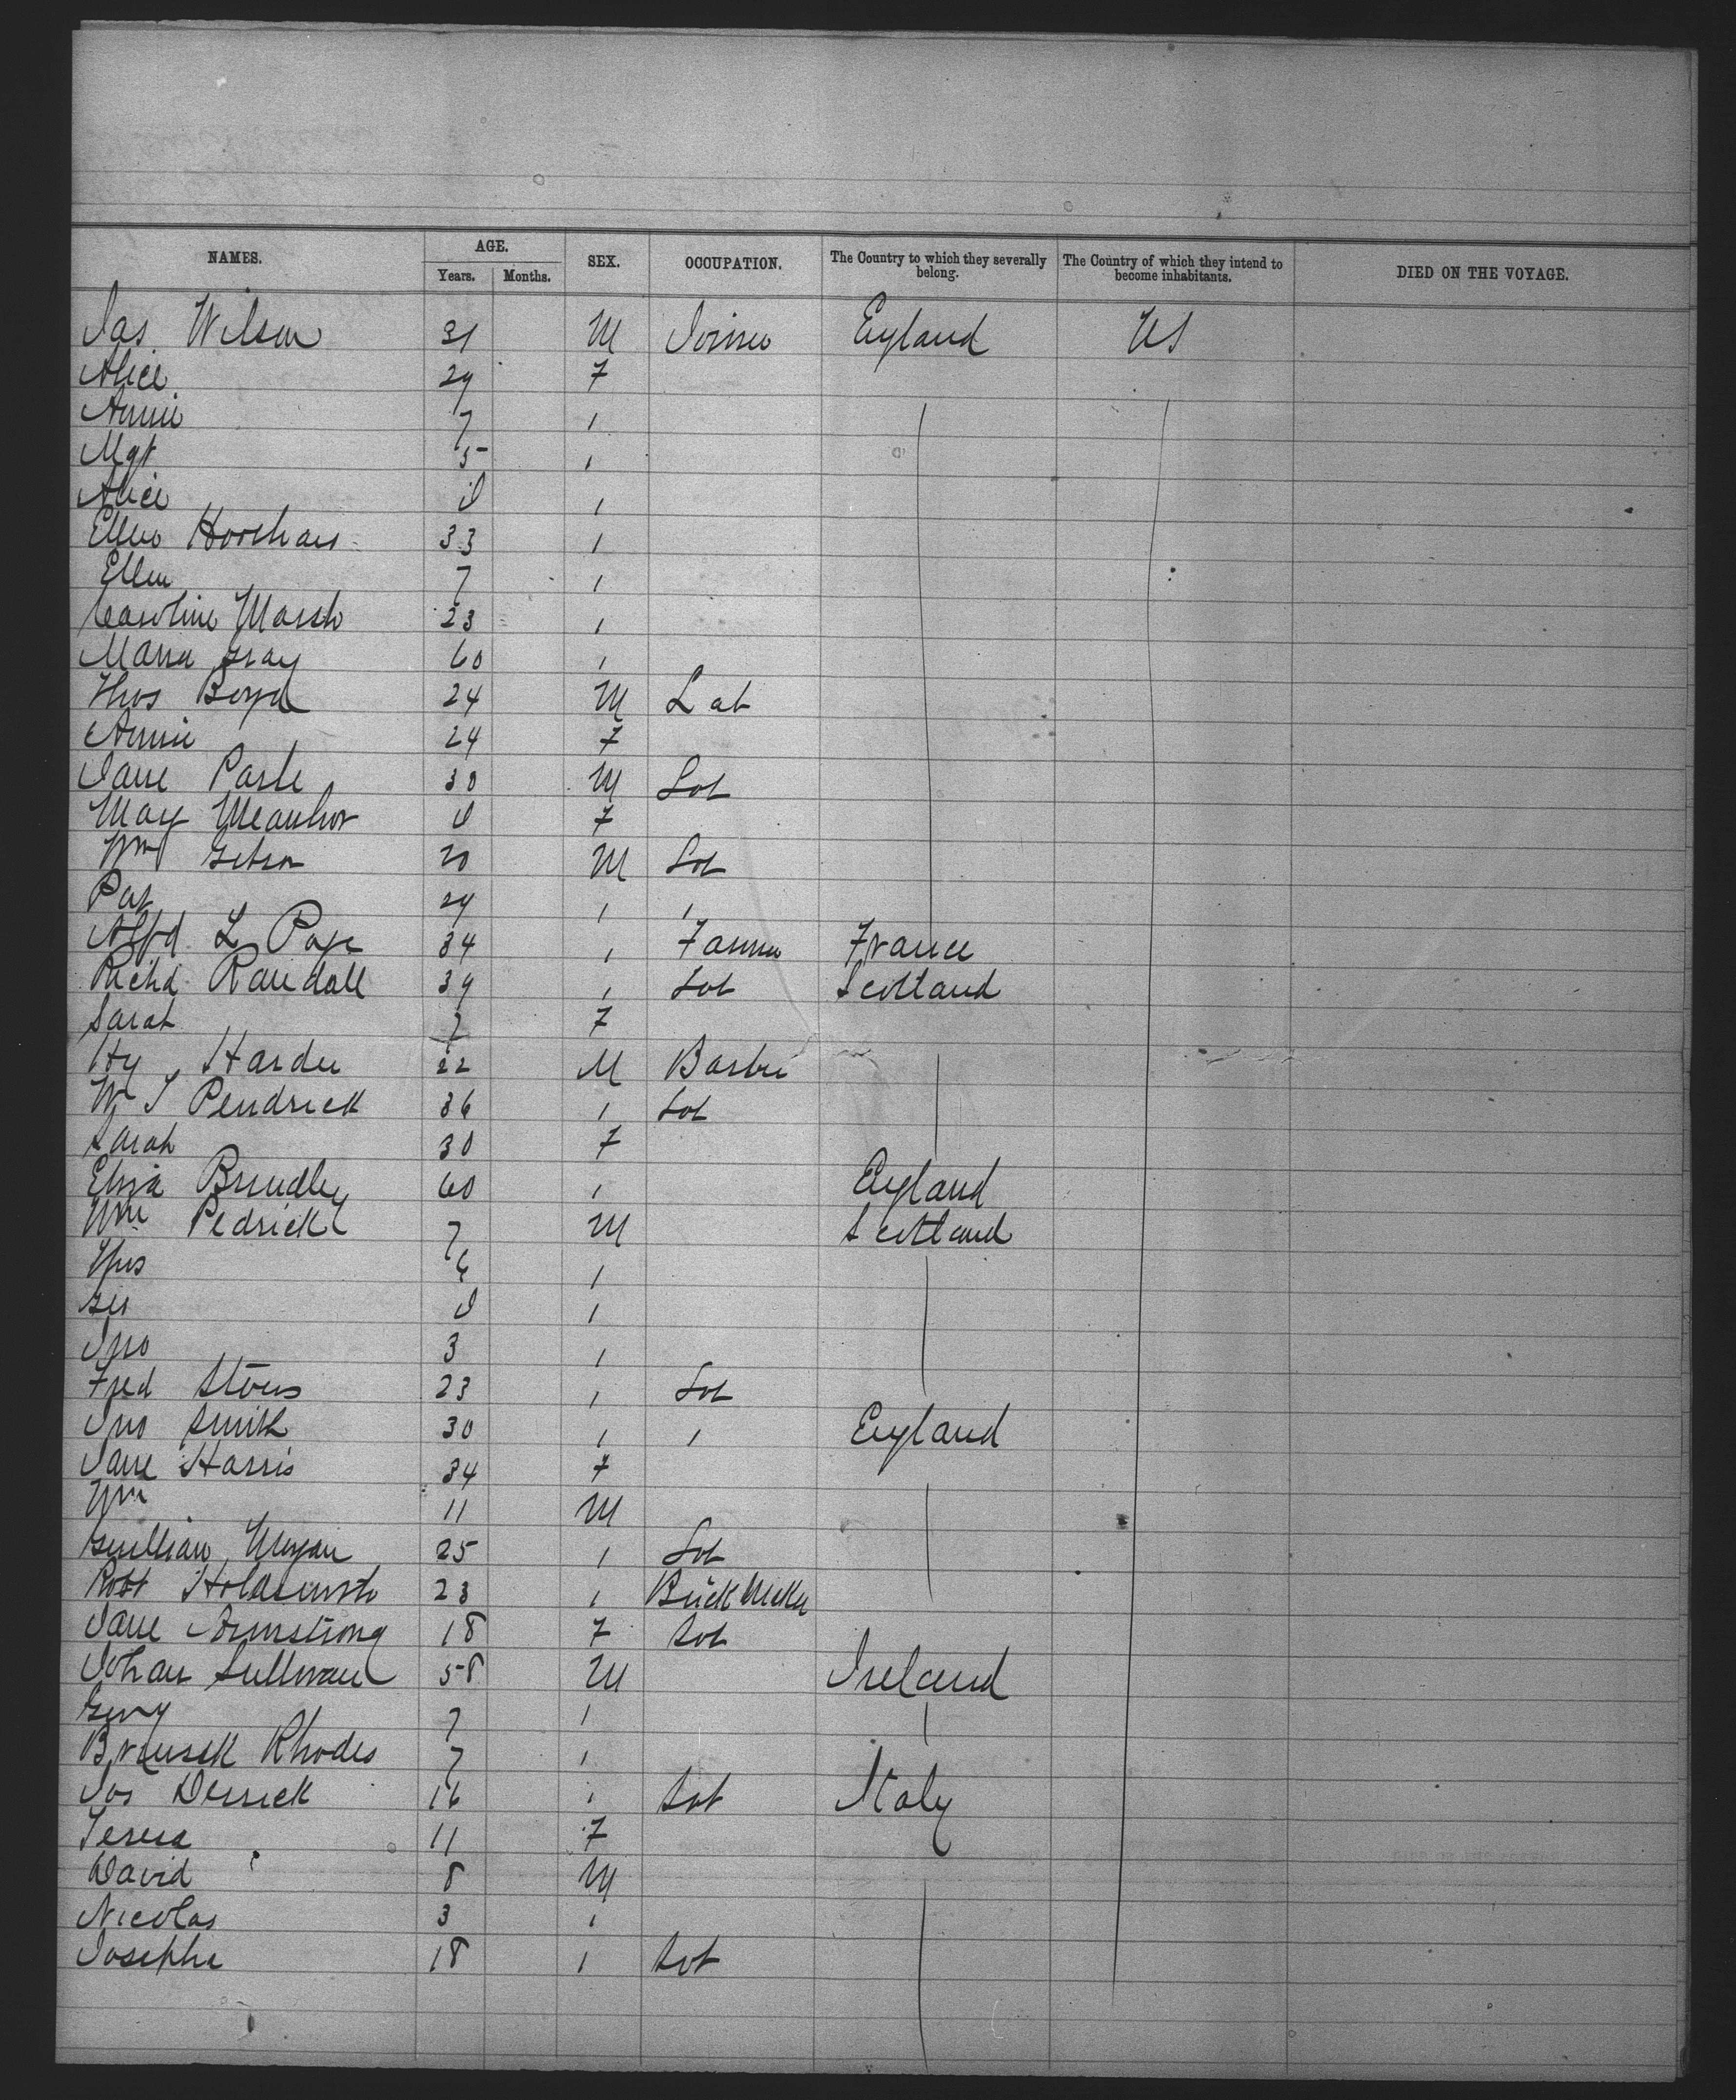 NAMES. AGE. SEX. OCCUPATION. The Country to which they severally belong. The Country of which they intend to become inhabitants. DIED ON THE VOYAGE.
Years. Months.
Jas Wilson 31 M Joiner England US
Alice 29 F
Annie 7 "
Mgt 5 "
Alice "
Ellen 33 "
Ellen 7 "
Caroline Marsh 23 "
Maria Gray 60 "
Thos Boyd 24 M Lab
Annie 24 F
Jane 30 M Lab
May F
Wm 20 M Lab
Pat 24 " "
Alfd L Page 34 " Farmer France
Richd Randall 39 " Lab Scotland
Sarah 7 F
Hy Harder 22 M Barber
W J Pendrick 36 " Lab
Sarah 30 F
Eliza Brindley 60 " England
Wm Pedrick 7 M Scotland
Thos 6 "
Geo "
Jno 3 "
Fred 23 " Lab
Jno Smith 30 " " England
Jane Harris 34 F
Wm 11 M
25 " Lab
Robt Holdsworth 23 " Brick Maker
Jane Armstrong 18 F Lab
Johan Sullivan 58 M Ireland
7 "
Rhodes 7 "
Jos Derrick 16 " Lab Italy
Teresa 11 F
David 8 M
Nicolas 3 "
Josephe 18 " Lab